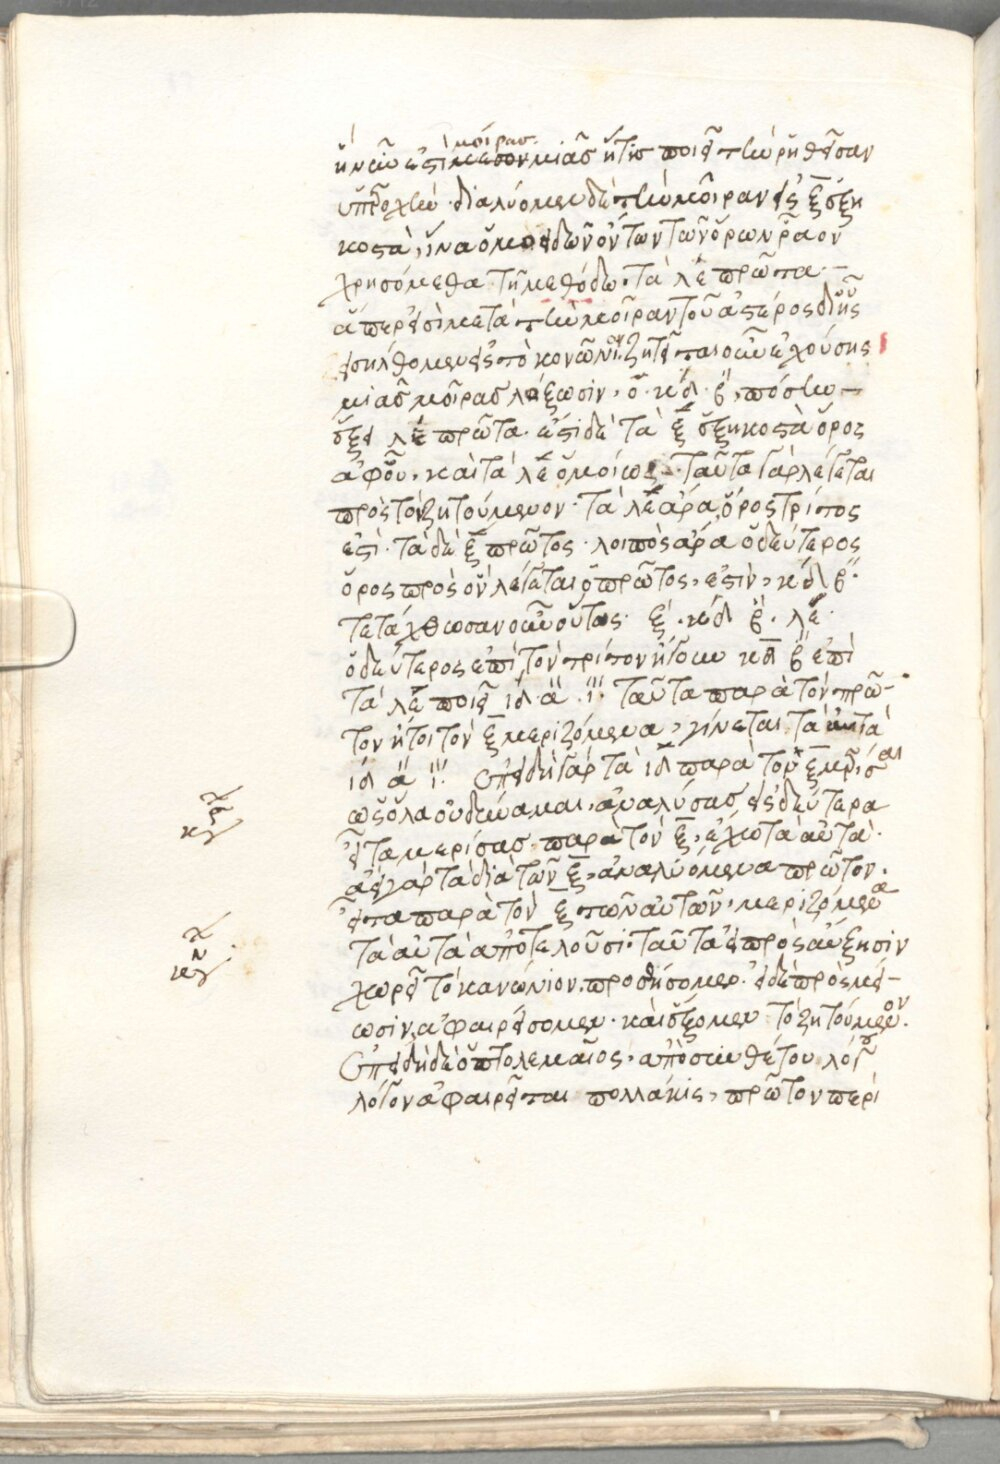 μοίρασ
ἡ νῦν ἐστὶ μιᾶσ ἥτισ ποιεῖ τὴν ῥηθεῖσαν
ὑπεροχὴν. διαλύομεν δὲ τὴν μοῖραν εἰς ξ ἑξη
κοστὰ, ἵνα ὁμοειδῶν ὄντων τῶν ὅρων ῥᾶον
χρησόμεθα τῇ μεθόδω. τὰ λε πρῶτα
ἅπερ εἰσὶ μετὰ τὴν μοῖραν τοῦ ἀστέρος δι' ἧς
εἰσήλθομεν εἰς τὸ κανόνιον. ζητεῖται οὖν ἐχούσης
μιᾶσ μοίρασ λείψωσιν, ο κδ β, πόσην
ἕξει λε πρῶτα. ἐπεὶ δὲ τὰ ξ ἑξηκοστὰ ὅρος
ἀφ' οὗ, καὶ τὰ λε ὁμοίως. ταῦτα γὰρ λέγεται
πρὸς τὸ ζητούμενον. τὰ λε ἄρα, ὅρος τρίτος
ἐστὶ. τὰ δὲ ξ πρῶτος. λοιπὸς ἄρα ὁ δεύτερος
ὅρος πρὸς ὃν λέγεται ὁ πρῶτος, ἐστὶν, κδ β.
τετάχθωσαν οὖν οὕτως. ξ. κδ β. λε.
ὁ δεύτερος ἐπὶ τὸν τρίτον ἤγουν κδ β ἐπὶ
τὰ λε ποιεῖ ιδ α ι. ταῦτα παρὰ τὸν πρῶ-
τον ἤτοι τὸν ξ μεριζόμενα, γίνεται τὰ αὐτὰ
ιδ α ι. ἐπειδὴ γὰρ τὰ ιδ παρὰ τὸν ξ μερίσαι
ὡς ὅλα οὐ δύναμαι, ἀναλύσασ εἰς δεύτερα
εἶτα μερίσασ παρὰ τὸν ξ, ἔχω τὰ αὐτὰ.
ἀεὶ γὰρ τὰ διὰ τῶν ξ, ἀναλυόμενα πρῶτον.
εἶτα παρὰ τὸν ξ τῶν αὐτῶν, μεριζόμενα
τὰ αὐτὰ ἀποτελοῦσι. ταῦτα εἰ πρὸς αὔξησιν
χωρεῖ τὸ κανόνιον, προσθήσομεν. εἰ δὲ πρὸς μεί-
ωσιν, ἀφαιρήσομεν. καὶ ἕξομεν τὸ ζητούμενον.
ἐπειδὴ δὲ ὁ πτολεμαῖος, ἀπὸ συνθέτου λόγου
λόγον ἀφαιρεῖται πολλάκις, πρῶτον περὶ